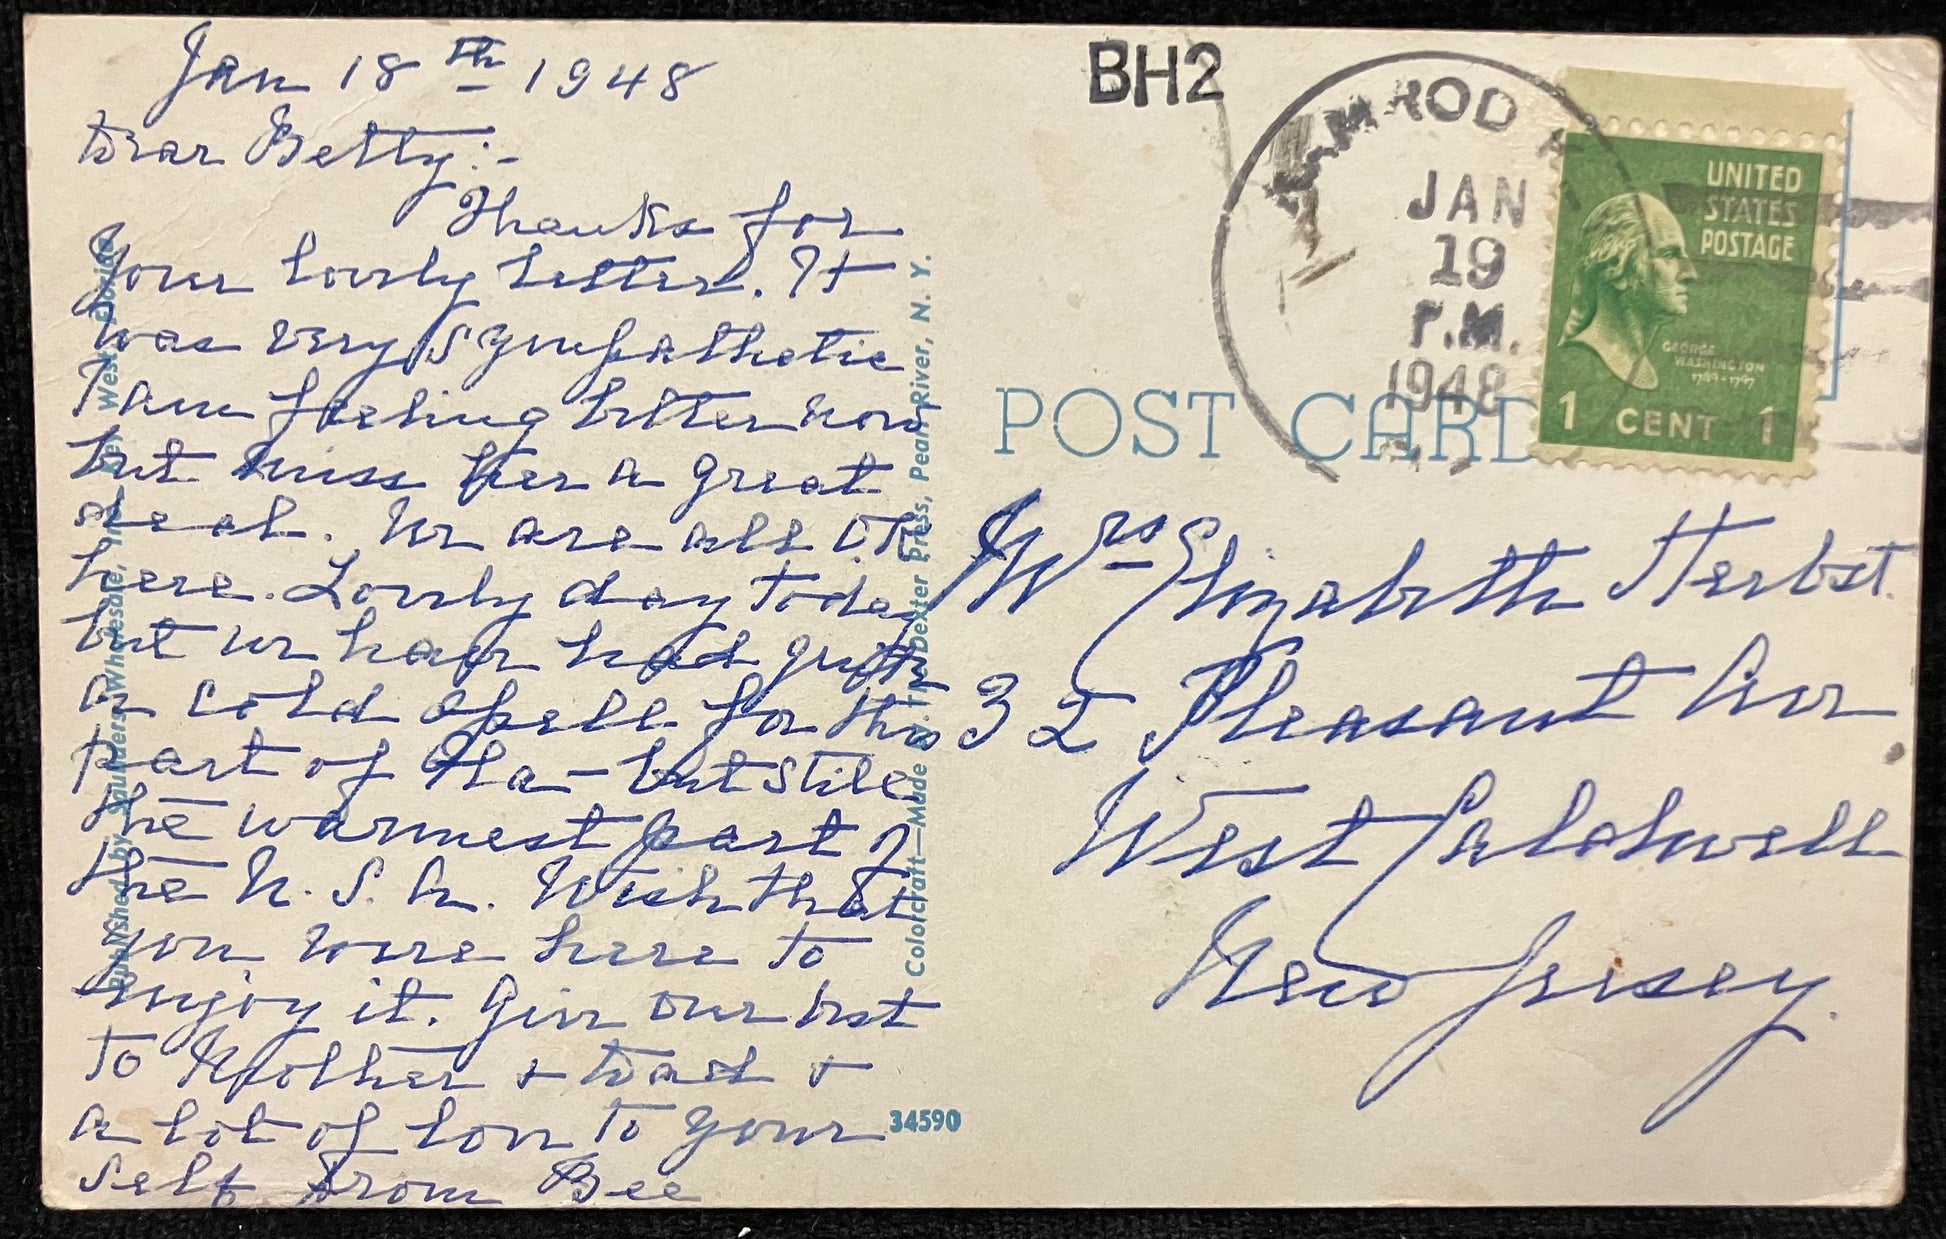 Jan 18th 1948
Dear Betty:-
Thanks for
your lovely letter. It
was very sympathetic
I am feeling better now
but miss her a great
deal. We are all O.K.
here. Lovely day today
but we have had quite
a cold spell for this
part of Fla - but still
the warmest part of
the U.S.A. Wish that
you were here to
enjoy it. Give our best
to Mother + Dad +
a lot of love to your
self from Bee
Published by Saunders Wholesale, Inc., Key West, Florida
Colorcraft—Made by The Dexter Press, Pearl River, N. Y.
34590
BH2
JAN
19
P.M.
1948
UNITED
STATES
POSTAGE
GEORGE
WASHINGTON
1789-1797
1 CENT 1
POST CARD
Mrs Elizabeth Herbst.
32 Pleasant Ave
West Caldwell
New Jersey.